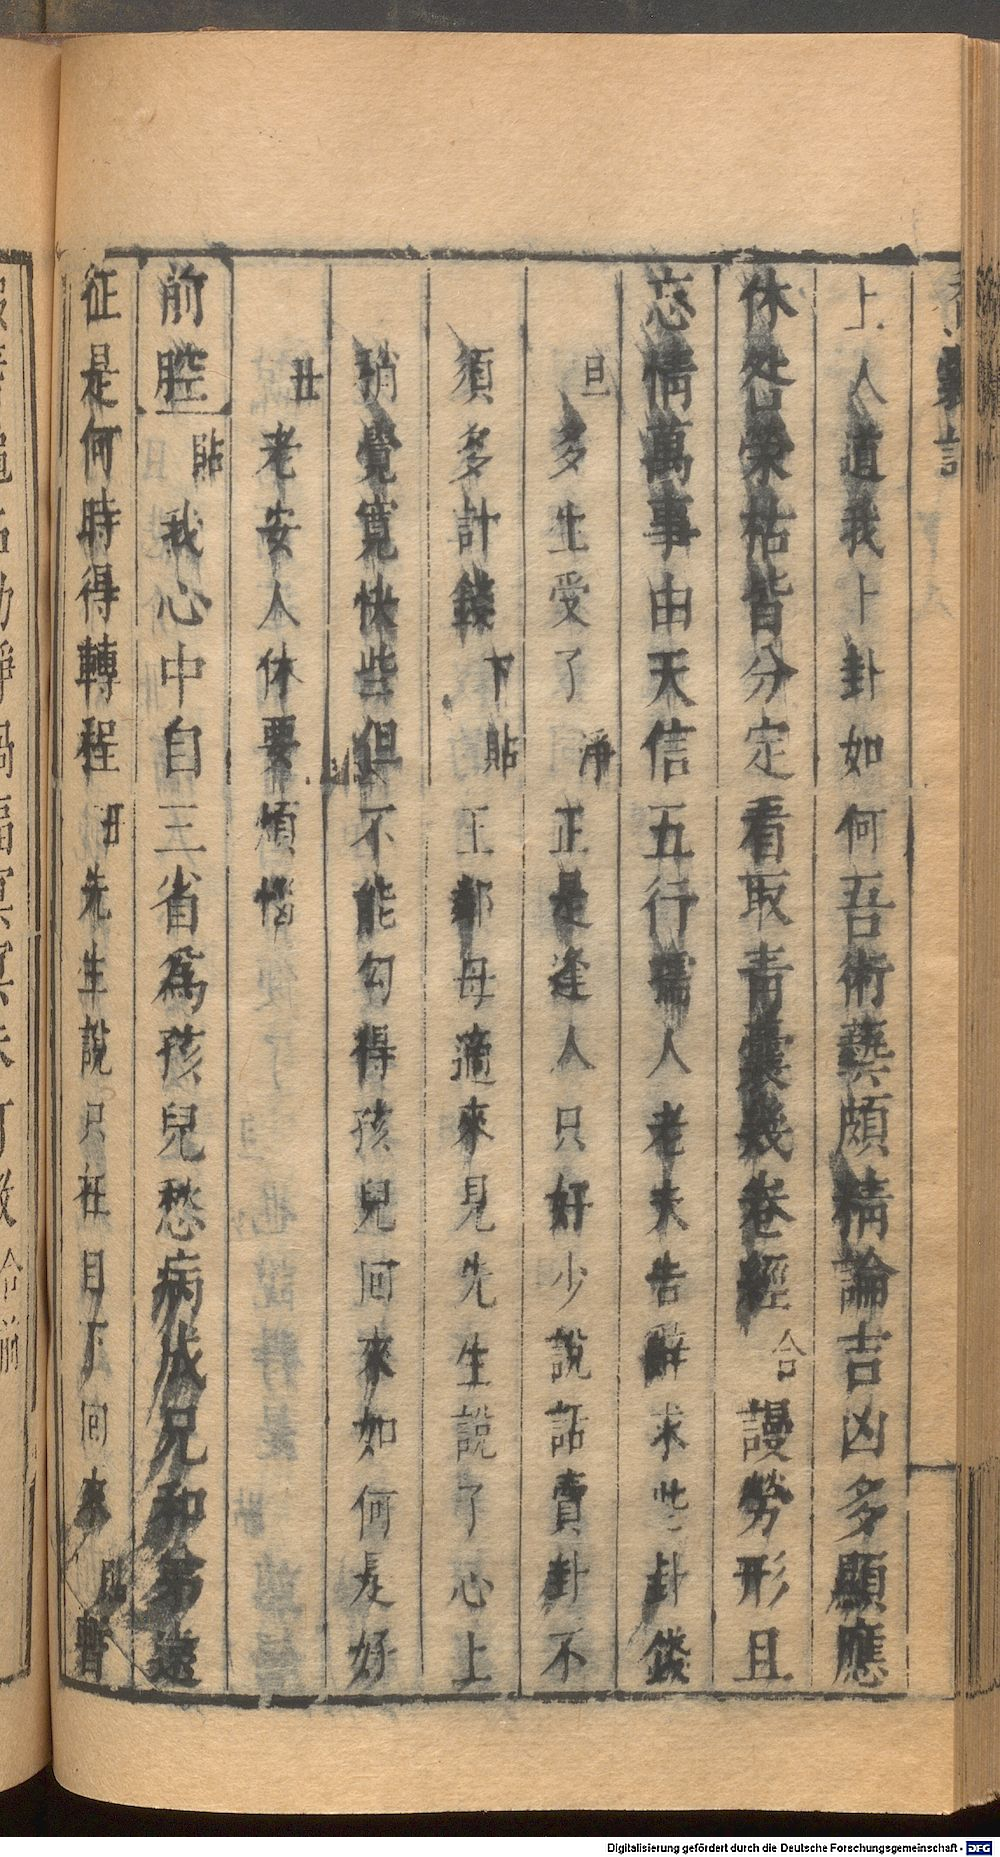 上人道我卜卦如何吾術藝頗精論吉凶多顯應
休咎榮枯皆分定看取青囊幾卷經合謾勞形且
忘情萬事由天信五行孺人老夫告辭求些卦錢
旦多生受了淨正是逢人只好少說話賣卦不
須多計錢下貼王都母適來見先生說了心上
稍覺寬快些但不能勾得孩兒回來如何是好
丑老安人休要煩惱
前腔貼我心中自三省為孩兒愁病成兄和弟遠
征是何時得轉程丑先生說只在目下回來貼暫
Digitalisierung gefördert durch die Deutsche Forschungsgemeinschaft - DFG